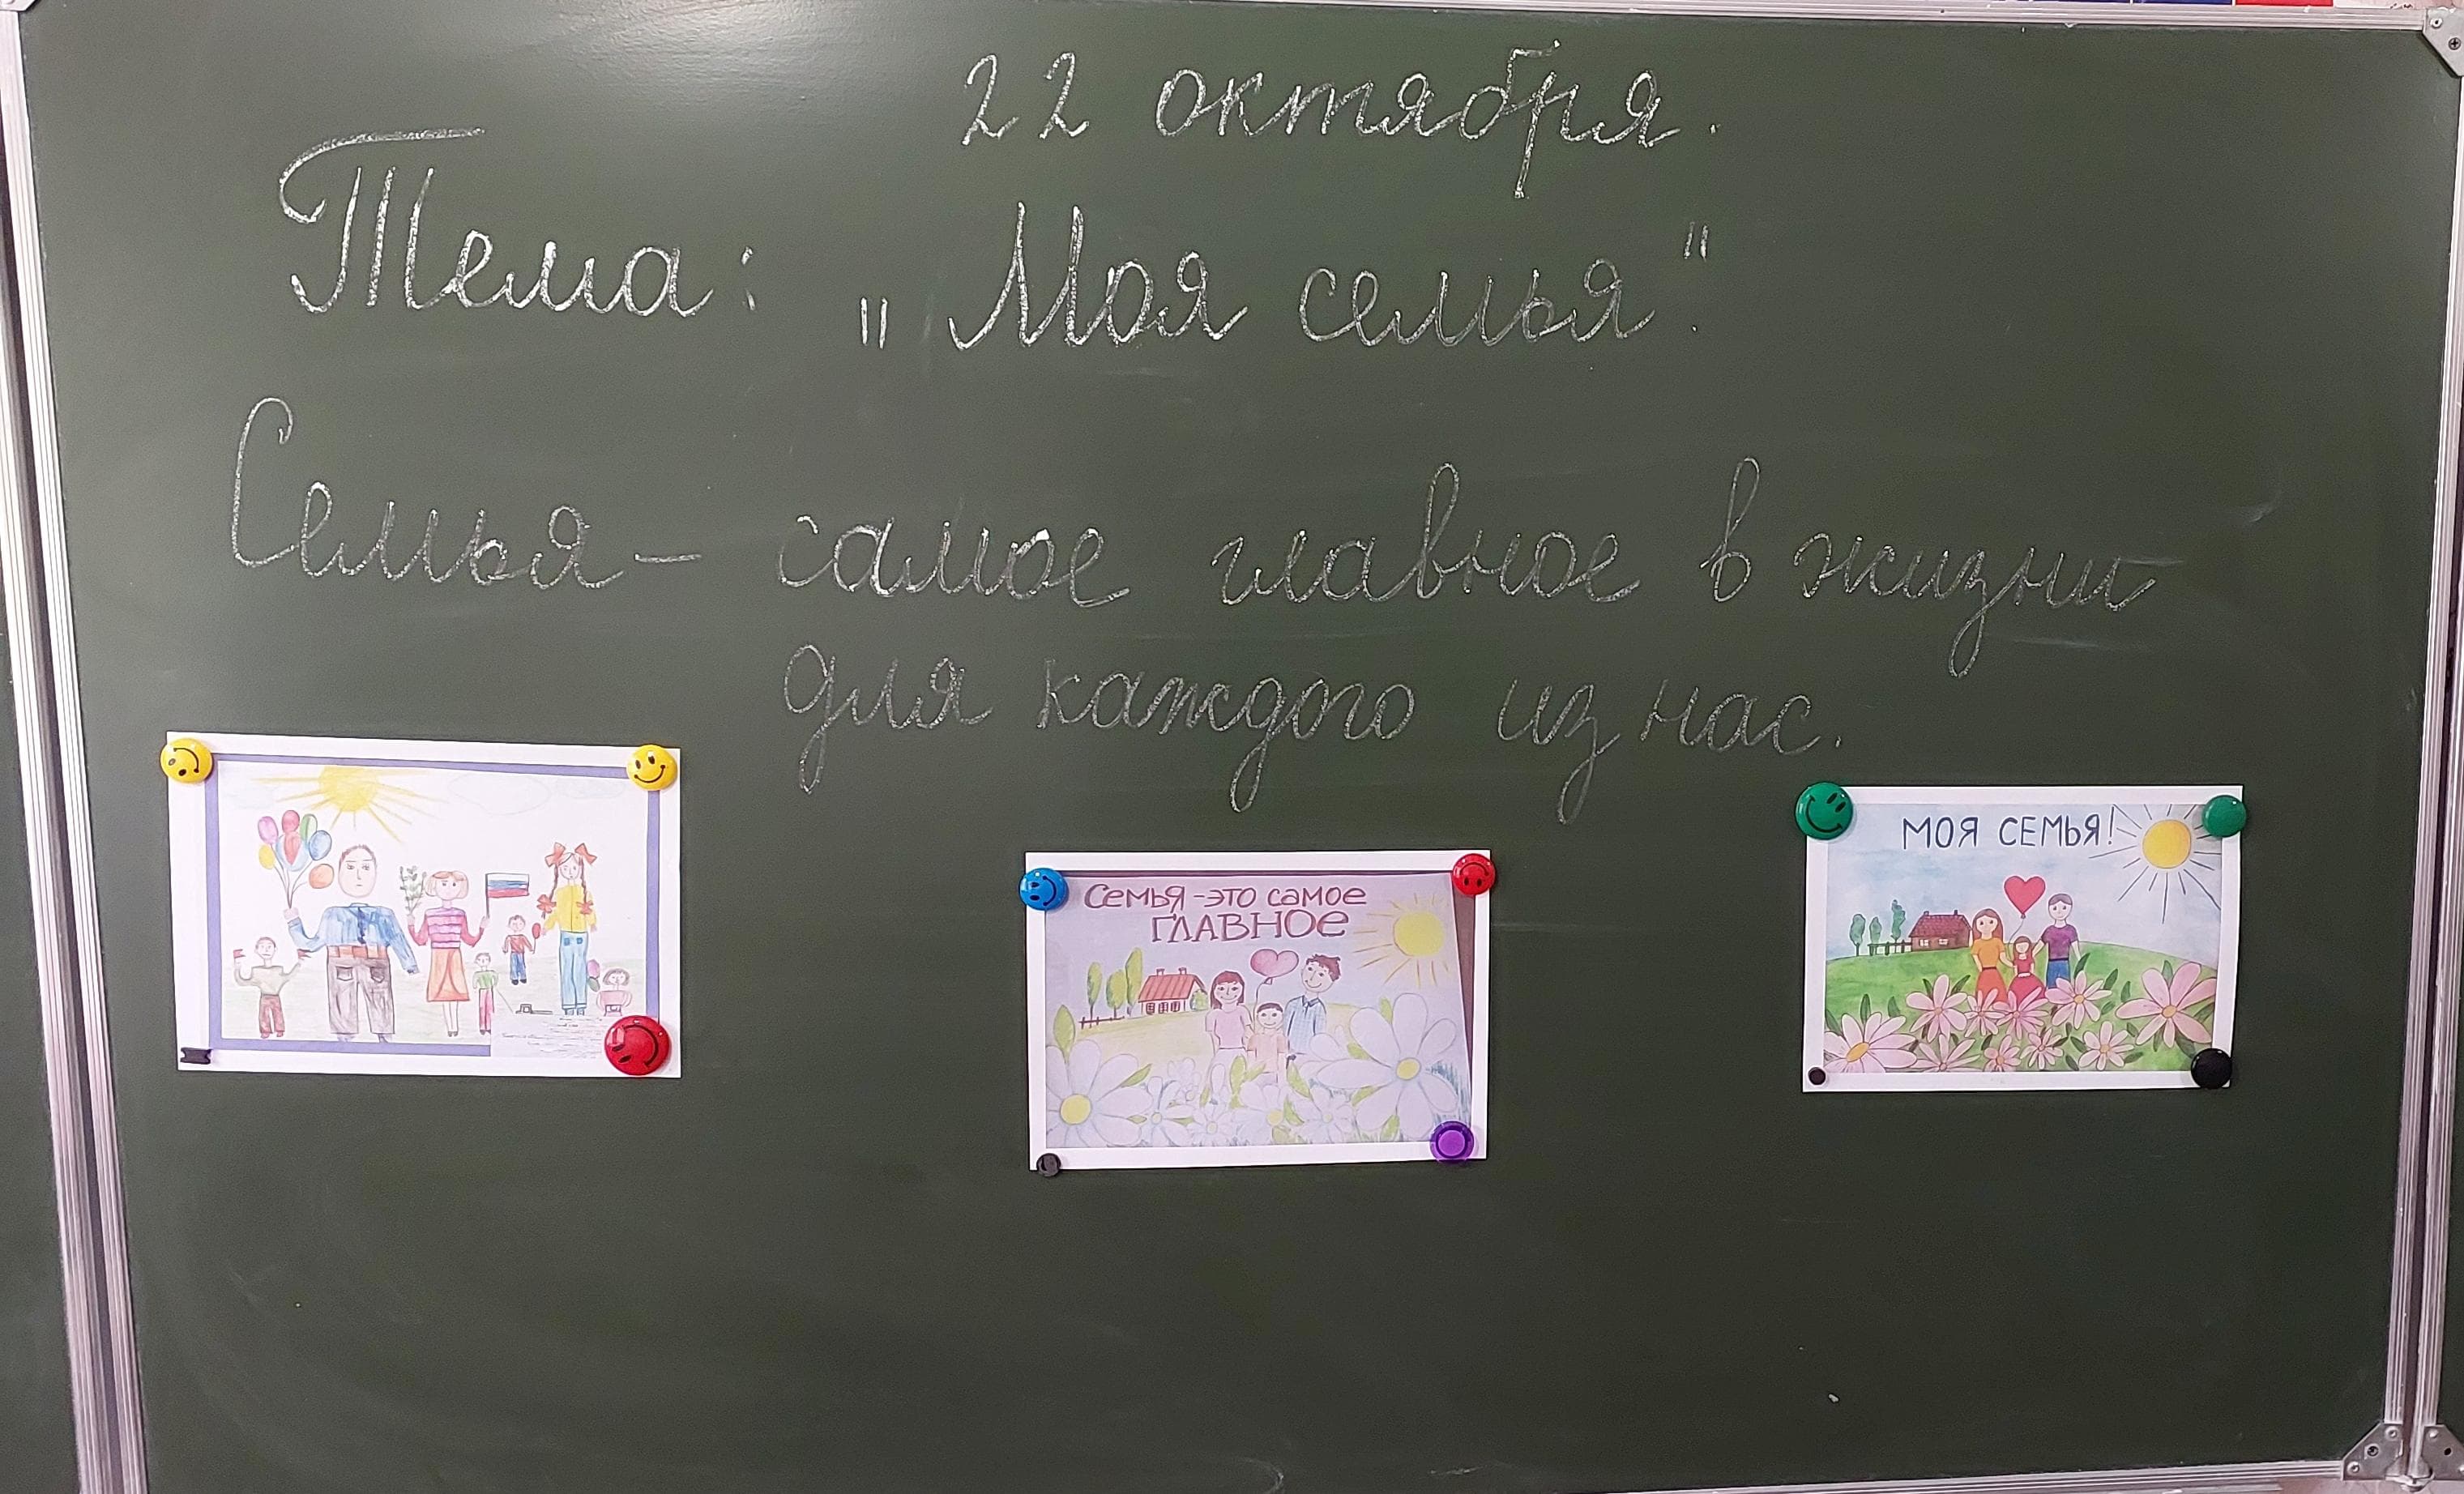 22 октября.
Тема: „Моя семья".
Семья - самое главное в жизни
для каждого из нас.
Семья - это самое
главное
Моя семья!